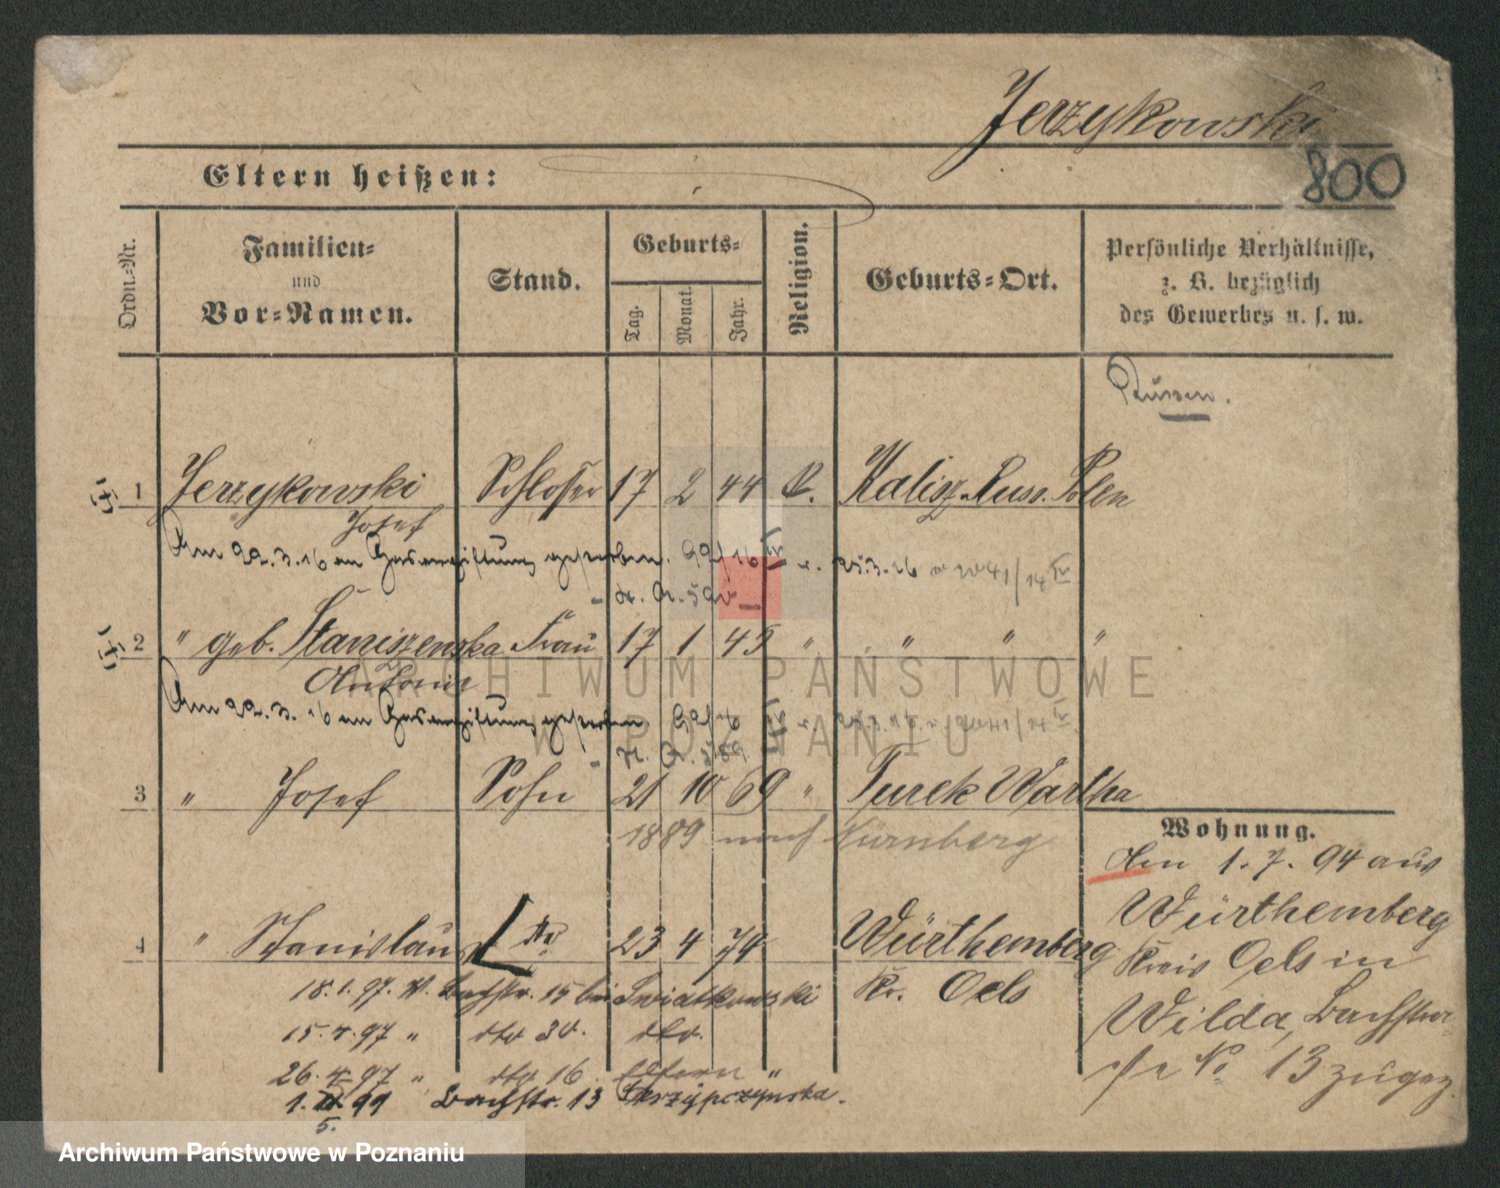 Jerzykowski
800
Eltern heißen:
Ordn.-Nr.
Familien-
und
Vor-Namen.
Stand.
Geburts-
Tag.
Monat.
Jahr.
Religion.
Geburts-Ort.
Persönliche Verhältnisse,
z. B. bezüglich
des Gewerbes u. s. w.
Russen.
1 Jerzykowski Schlosser 17 2 44 K. Kalisz Russ. Polen
Josef
Am 22.3.16 an Gasvergiftung gestorben. 25.3.16
2 " geb. Staniszewska Frau 17 1 45 " " " "
Antonie
Am 22.3.16 an Gasvergiftung gestorben
3 " Josef Sohn 21 10 69 " Turek Wartha
1889 nach Nürnberg
Wohnung.
Am 1.7.94 aus
Würthemberg
Kreis Oels in
Wilda, Bachstra-
ße No 13 zugez.
4 " Stanislaus dto 23 4 74 Würthemberg
Kr. Oels
18.1.97. W. Bachstr. 15 bei Swiatkowski
15.4.97 " dto 30. dto.
26.4.97 " dto 16 Eltern "
1.5.99 Bachstr. 13 Skrzypczynska.
ARCHIWUM PAŃSTWOWE
W POZNANIU
Archiwum Państwowe w Poznaniu